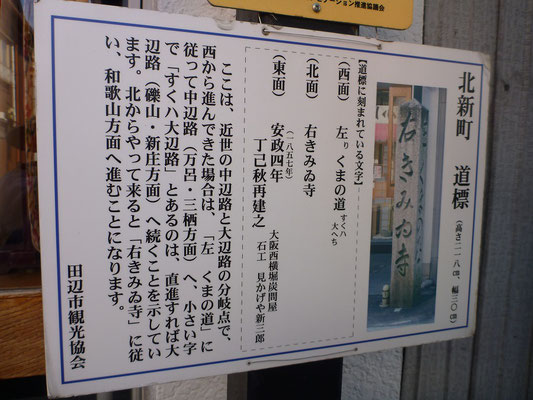 ーション推進協議会
北新町　道標（高さ二一八㎝、幅三〇㎝）
右きみゐ寺
【道標に刻まれている文字】
（西面）　左り　くまの道　すくハ　大へち
（北面）　右きみゐ寺
（東面）　安政四年　丁己秋再建之
（一八五七年）
大阪西横堀炭問屋
石工　見かげや新三郎
ここは、近世の中辺路と大辺路の分岐点で、
西から進んできた場合は、「左　くまの道」に
従って中辺路（万呂・三栖方面）へ、小さい字
で「すくハ大辺路」とあるのは、直進すれば大
辺路（礫山・新庄方面）へ続くことを示してい
ます。北からやって来ると「右きみゐ寺」に従
い、和歌山方面へ進むことになります。
田辺市観光協会